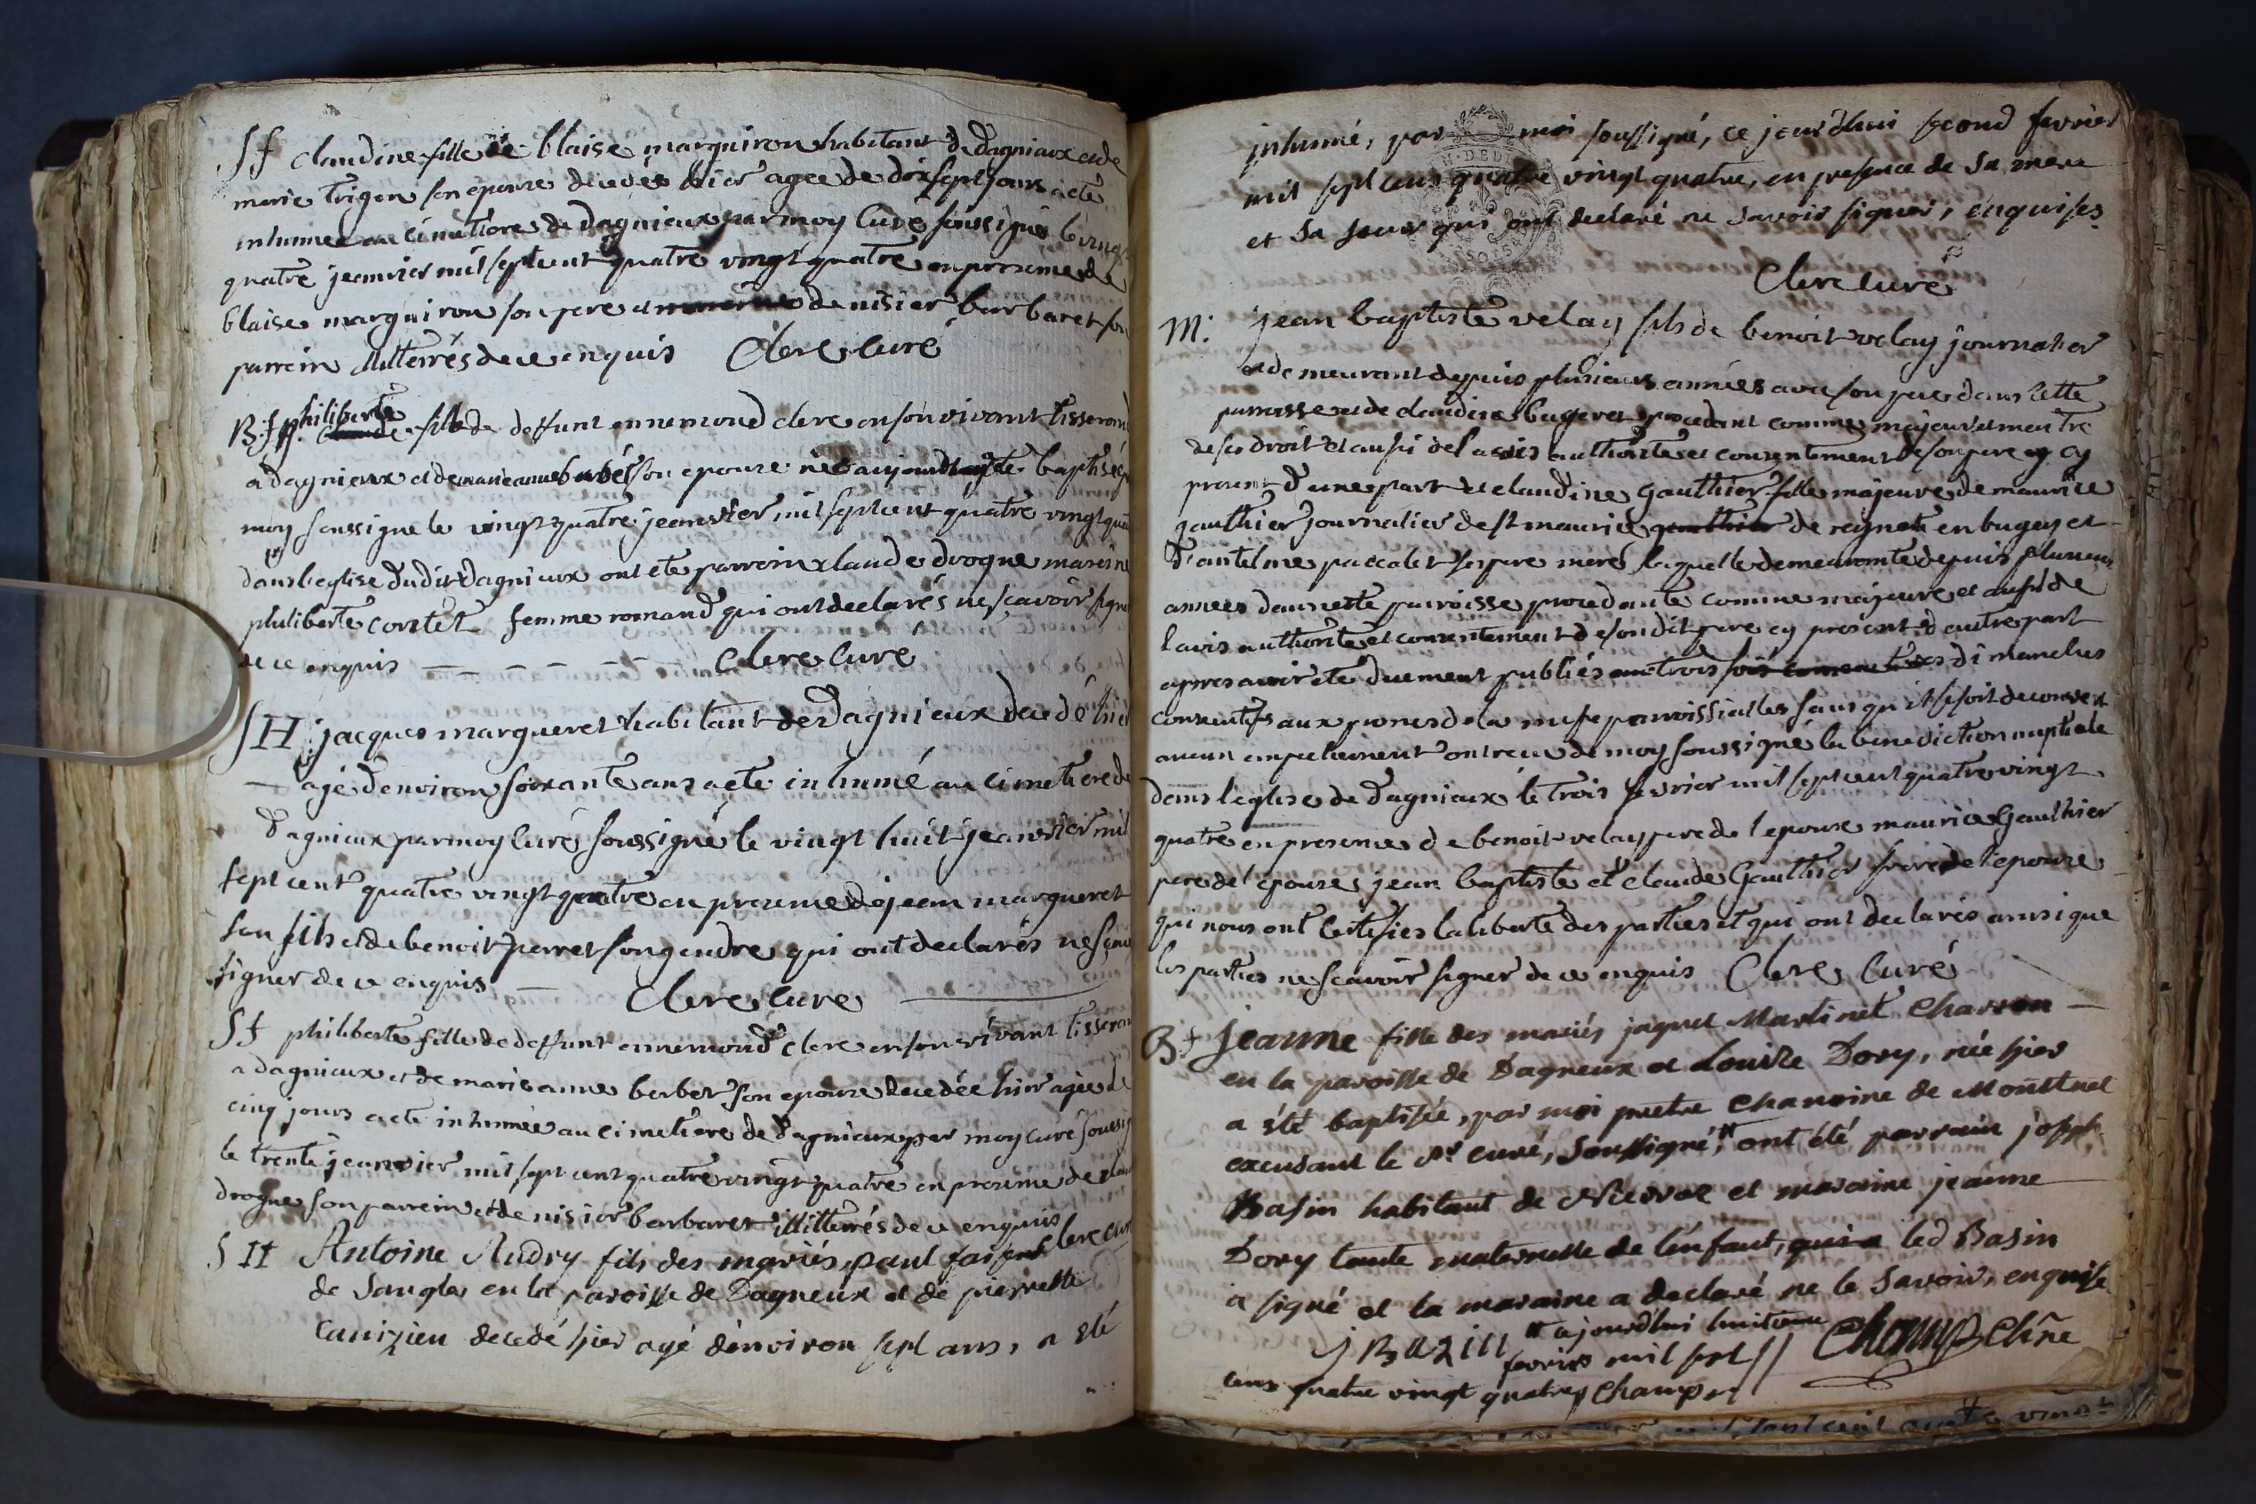 Sf claudine fille de blaise marquiron habitant de dagnieux et de
marie trigon son epouse decedée hier agée de dix sept jours a eté
inhumee au cimetiere de dagnieux par moy curé soussigné le vingt
quatre jeanvier mil sept cent quatre vingt quatre en presence de
blaise marquiron son pere et de nisier barbaret son
parrein illiterrés de ce enquis Clere curé
B.f philiberte fille de deffunt ennemond clere en son vivant tisserand
a dagnieux et de marie anne barbet son epouse née aujourdhuy a eté baptisée par
moy soussigné le vingt quatre jeanvier mil sept cent quatre vingt quatre
dans l'eglise dudit dagnieux ont eté parrein claude drogue mareine
philiberte contet femme romand qui ont declarés ne sçavoir signer
de ce enquis Clere curé
SH jacques margueret habitant de dagnieux decedé hier
agé d'environ soixante ans a eté inhumé au cimetiere de
dagnieux par moy curé soussigné le vingt huit jeanvier mil
sept cent quatre vingt quatre en presence de jean margueret
son fils et de benoit perret son gendre qui ont declarés ne sçavoir
signer de ce enquis Clere curé
Sf philiberte fille de deffunt ennemond clere en son vivant tisserand
a dagnieux et de marie anne berbet son epouse decedée hier agée de
cinq jours a eté inhumée au cimetiere de dagnieux par moy curé soussigné
le trente jeanvier mil sept cent quatre vingt quatre en presence de claude
drogue son parrein et de nisier barbaret illitterrés de ce enquis Clere curé
SH Antoine Audry fils des mariés paul
de Sangla, en la paroisse de Dagneux et de pierrette
decedé hier agé d'environ sept ans, a eté
inhumé, par moi soussigné, ce jourd'hui second fevrier
mil sept cens quatre vingt quatre, en presence de sa mere
et sa soeur qui ont declaré ne savoir signer, enquises
Clere curé
M. jean baptiste velay fils de benoit velay journalier
et demeurant depuis plusieurs années avec son pere dans cette
parroisse et de claudine bugeret procedant comme majeur et maitre
de ses droit et aussi de l'avis authorité et consentement de son pere cy
present d'une part et claudine gauthier fille majeure de maurice
gauthier journalier de st maurice de reynete en bugey et
d'antelme paccalet ses pere mere laquelle demeurante depuis plusieurs
années dans cette parroisse procedante comme majeure et aussi de
l'avis authorité et consentement de son dit pere cy present d'autre part
apres avoir eté duement publiés trois dimanches
consecutifs aux prones de la messe parroissialles sans qu'il se soit decouvert
aucun empechement ont recu de moy soussigné la benediction nuptiale
dans l'eglise de dagnieux le trois fevrier mil sept cent quatre vingt
quatre en presence de benoit velay pere de l'epoux maurice Gauthier
pere de l'epouse jean baptiste et claude Gauthier frere de l'epouse
qui nous ont certifiés la liberté des parties et qui ont declarés ainsi que
les parties ne sçavoir signer de ce enquis Clere curé
B f jeanne fille des mariés jaquet Martinet charron
en la paroisse de Dagneux et Louise Dory, née hier
a été baptisée, par moi pretre chanoine de Montluel
excusant le Sr curé, soussigné, # ont été parrain joseph
Basin habitant de et maraine jeanne
Dory tante maternelle de l'enfant, led Basin
a signé et la maraine a declaré ne le savoir, enquise
j Bazin # ajourd'hui huitieme Champ chne
fevrier mil sept
cens quatre vingt quatre Champ